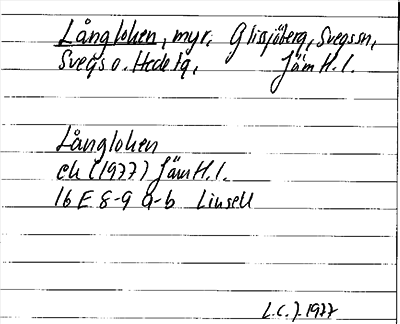 Långlohen, myr. Glissjöberg, Svegssn,
Svegs o. Hede tg, Jäm H. l.
Långlohen
ek (1977) Jäm H. l.
16 E 8-9 a-b Linsell
L.C.J. 1977